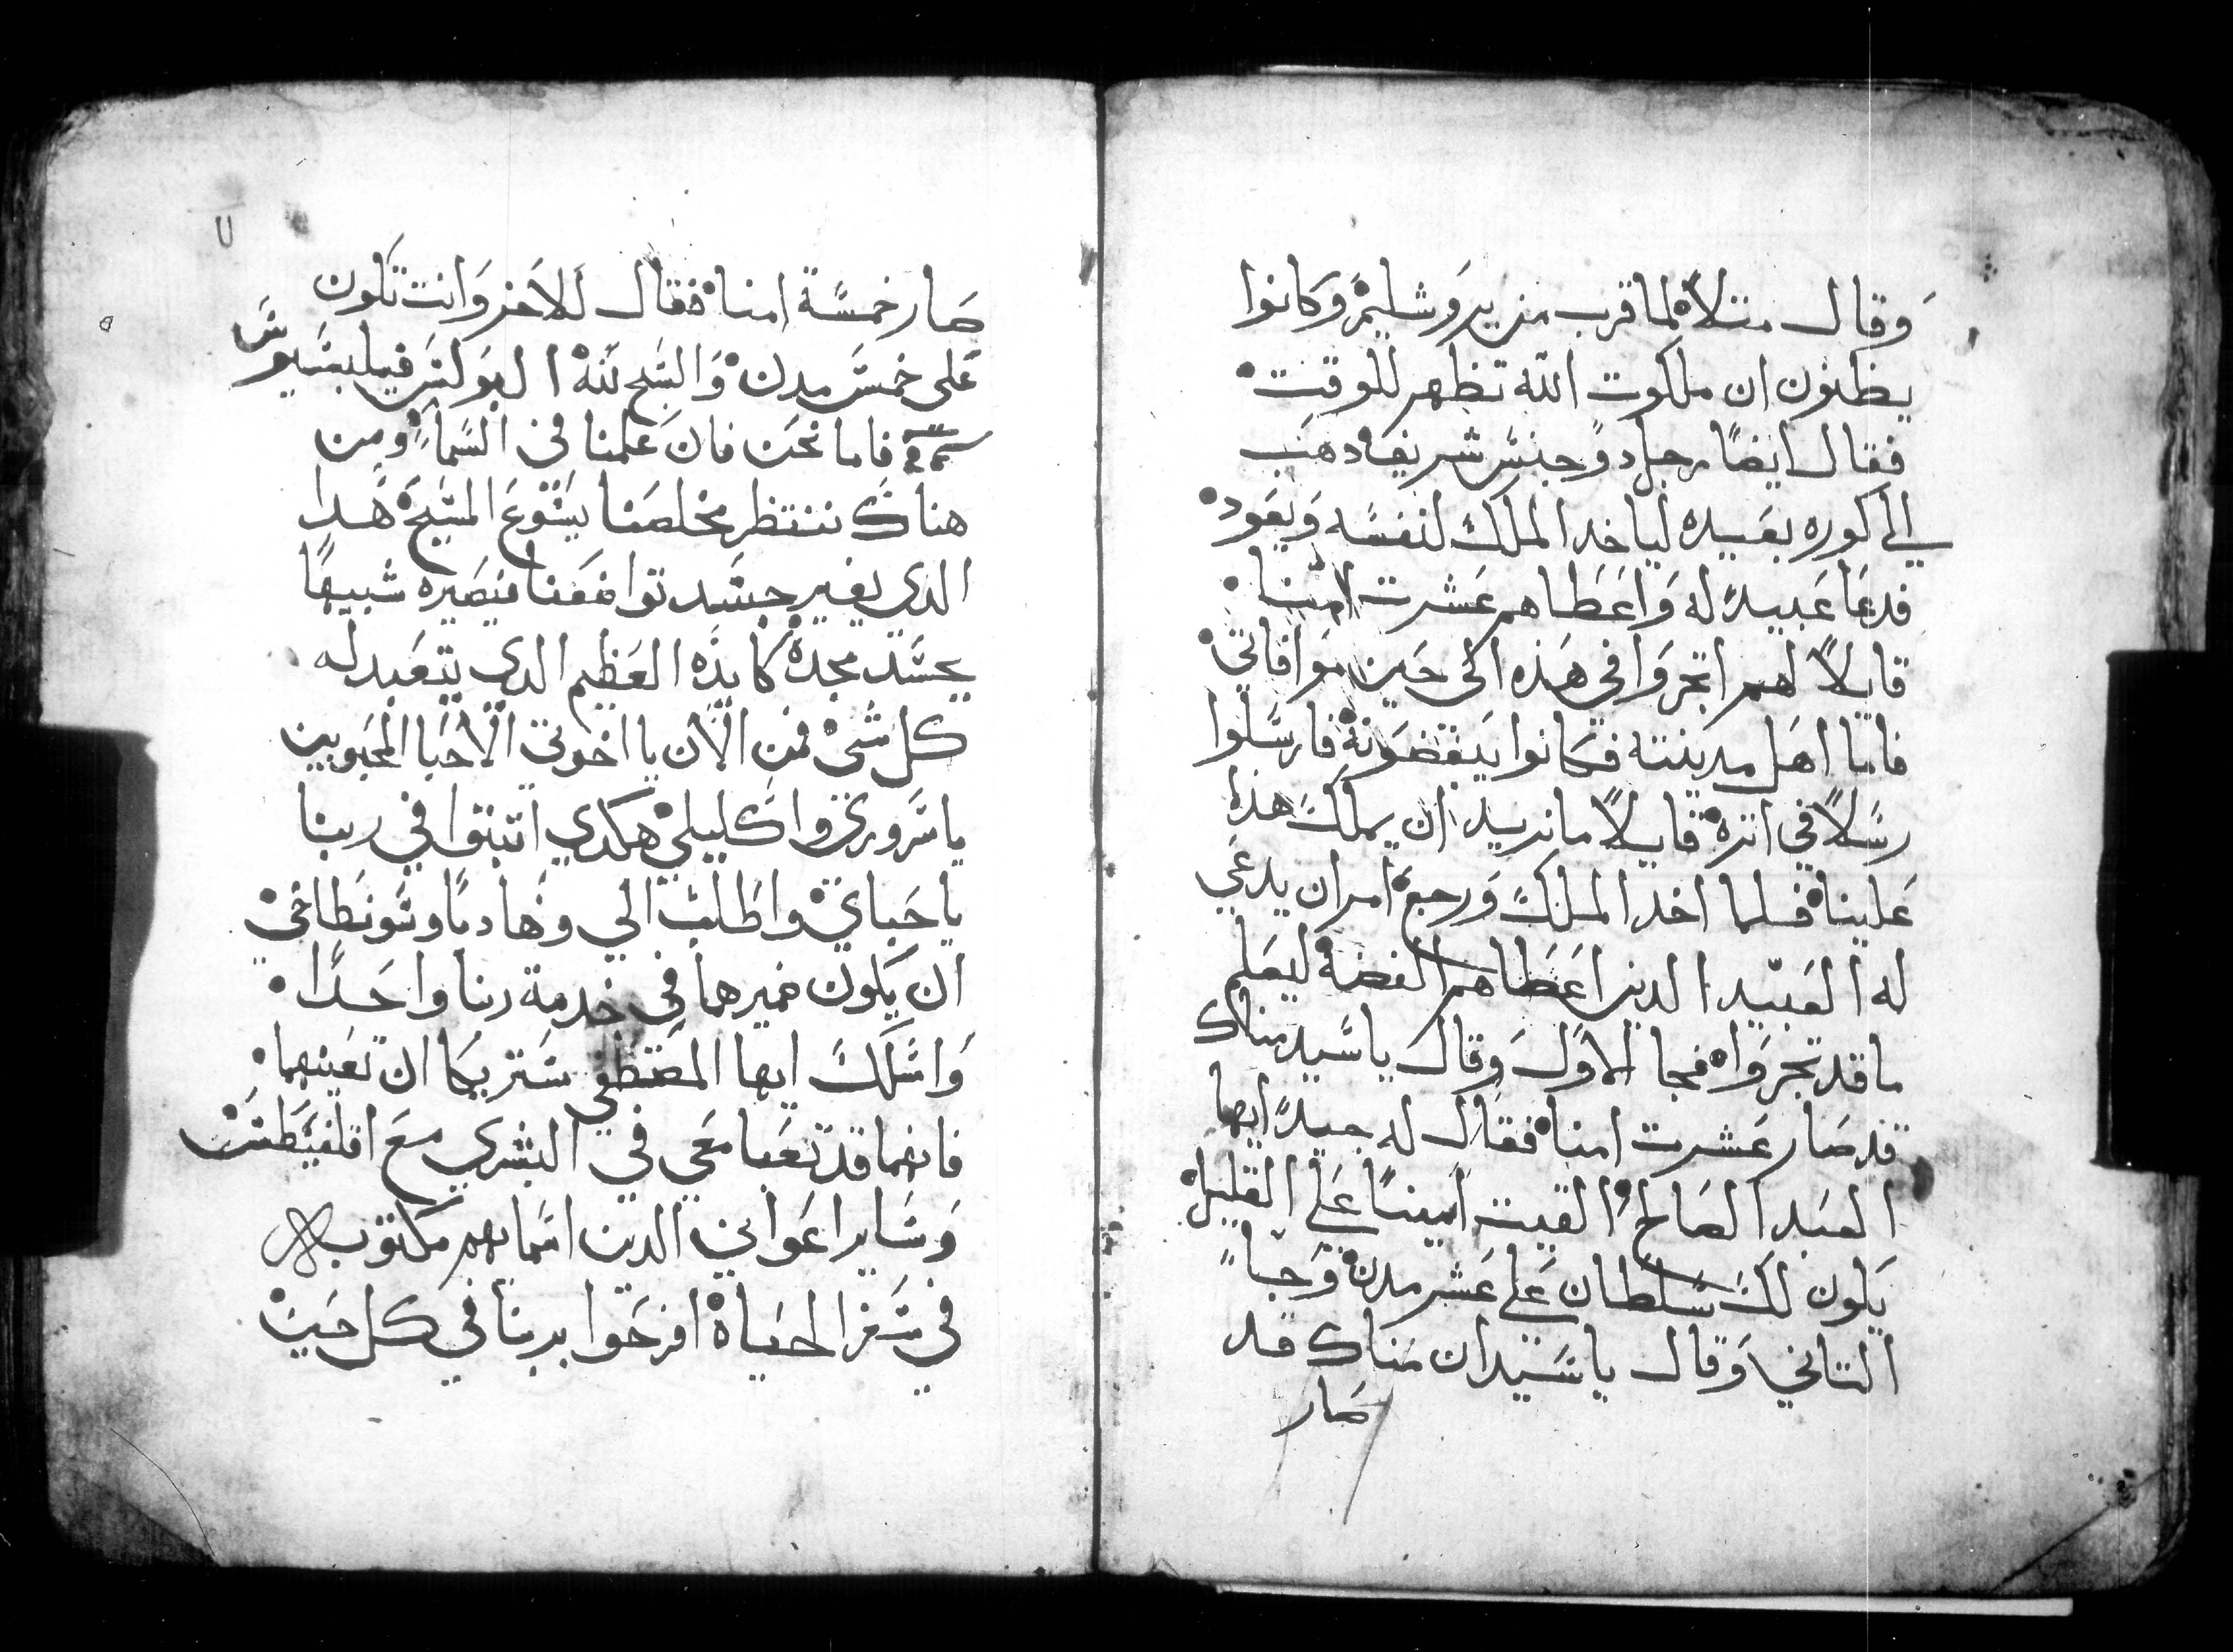 وَقال متلاً لما قرب من يروَشليمْ وَكانوا
يظنون ان ملكوت الله تظهر للوقت
فقال ايضًا رجل دو جنسْ شريف دهب
الي كوره بعَيده لياخد الملك لنفسْه وَيعَود
فدعَا عَبيدً له وَاعَطاهم عَشرت امنا
قايلاً لهم اتجروَا في هَذه الى حَين موَافاتي
فاما اهَل مدينته فكانوا يبغضوَنه فارسَلوا
رسَلاً في اتره قايلاً ما نريد ان يملك هذا
عَلينا فلما اخد الملك وَرجعَ امر ان يدعَي
له العَبيد الدين اعَطاهم الفضة ليعَلم
ما قد تجروَا فجا الاوَل وَقال ياسَيد مناك
قد صَار عَشرت امنا فقال له جيدً ايها
العَبد الصَالح الفيت امينًا عَلي القليل
يَكون لك سَلطان عَلي عَشر مدن وَجا
التاني وَقال ياسَيد ان مَناك قد
صَار
٧
صَار خمسَة امنا فقال للاَخر وَانت تكون
عَلى خمسَ مدن وَالسَبح لله ا ابوَلسَ فيلبسَيوسَ
فاما نحَن فان عَلمنا في السَماءِ ومن
هناك ننتظر مخلصَنا يسَوعَ المسَيحَ هَدا
الدي يغير جسَد تواضعَنا فيصَيره شبيهًا
بجسَد مجده كايدَه العَظيم الدي يتعَبد له
كل شَي فمن الاَن يا اخوتي الاَحَبا المحَبوبين
ياسَروري وَاكليلي هكدي اتبتوا في ربنا
ياحَباي وَاطَلب الي وَهَاديا وسَونطاخي
ان يَكون ضميرهما في خدمة ربنا واحَدًا
وَاسَلك ايها المصَطفي سَتريكا ان تعَينهما
فانهما قد تعَبا معَي في البشري معَ اقلفيسَطسَ
وَسَاير اعَوَاني الدين اسَمايهم مكتوَبه
في سَفر الحَياة افرحَوا بربنا في كل حَين